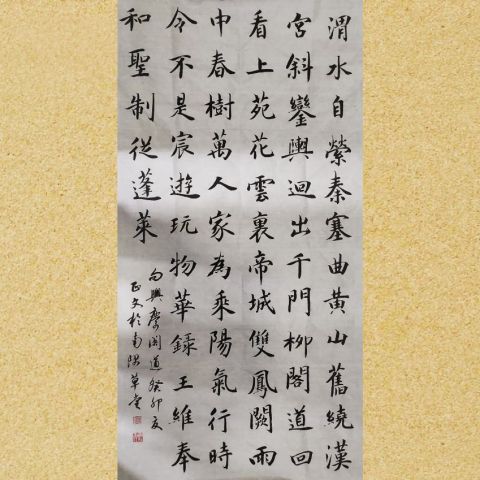 渭水自縈秦塞曲黄山舊繞漢
宮斜鑾輿迴出千門柳閣道回
看上苑花雲裏帝城雙鳳闕雨
中春樹萬人家為乘陽氣行時
令不是宸遊玩物華錄王維奉
和聖制從蓬萊
向興慶閣道癸卯夏
正文於南草堂